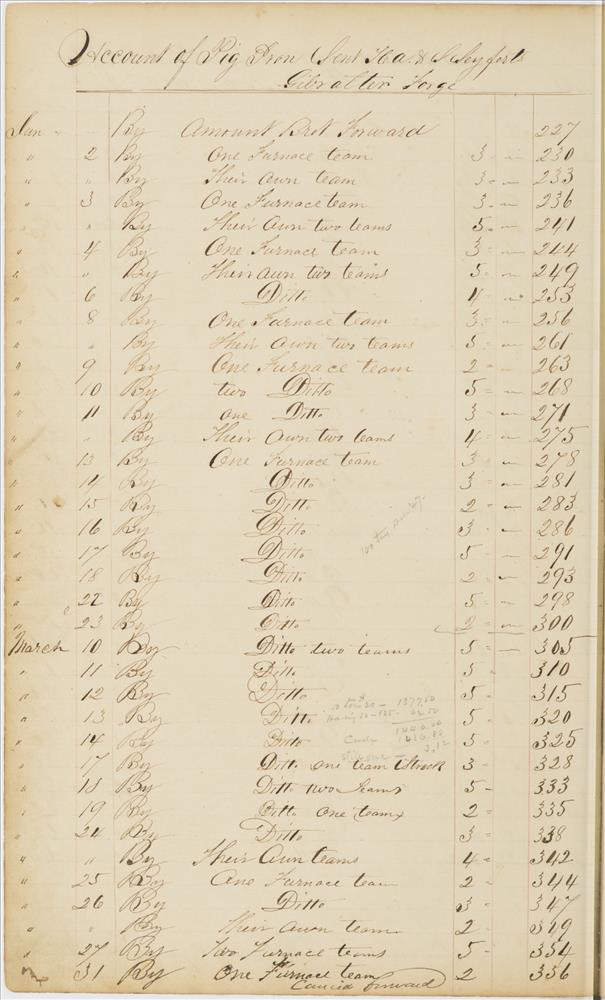 Account of Pig Iron Sent H. a & S Seyferts
Gibralter Forge
Jan " By Amount Brot Forward 227
" 2 By One Furnace team 3 = — 230
" " By Their Own team 3 = — 233
" 3 By One Furnace team 3 = — 236
" " By Their Own two teams 5 = — 241
" 4 By One Furnace team 3 = — 244
" " By Their Own two teams 5 = — 249
" 6 By Ditto 4 = — 253
" 8 By One Furnace team 3 = — 256
" " By Their Own two teams 5 = — 261
" 9 By One Furnace team 2 = — 263
" 10 By two Ditto 5 = — 268
" 11 By one Ditto 3 = — 271
" " By Their Own two teams 4 = — 275
" 13 By One Furnace team 3 = — 278
" 14 By Ditto 3 = — 281
" 15 By Ditto 2 = — 283
" 16 By Ditto 3 = — 286
" 17 By Ditto 5 = 291
" 18 By Ditto 2 = — 293
" 22 By Ditto 5 = 298
" 23 By Ditto 2 = — 300
March 10 By Ditto two teams 5 = — 305
" 11 By Ditto 5 = 310
" 12 By Ditto 5 = 315
" 13 By Ditto 5 = 320
" 14 By Ditto 5 = 325
" 17 By Ditto one team 3 = 328
" 18 By Ditto two teams 5 = 333
" 19 By Ditto one team 2 = 335
" 24 By Ditto 3 = 338
" " By Their Own teams 4 = 342
" 25 By One Furnace team 2 = 344
" 26 By Ditto 3 = 347
" " By Their Own team 2 = 349
" 27 By Two Furnace teams 5 = 354
" 31 By One Furnace team 2 356
Carried forward